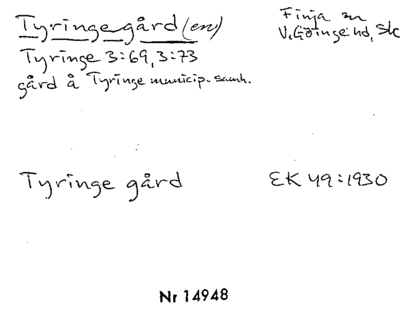 Tyringe gård (en)
Finja sn
V. Göinge hd, Sk
Tyringe 3:69, 3:73
gård å Tyringe municip.-samh.
Tyringe gård
EK 49:1930
Nr 14948